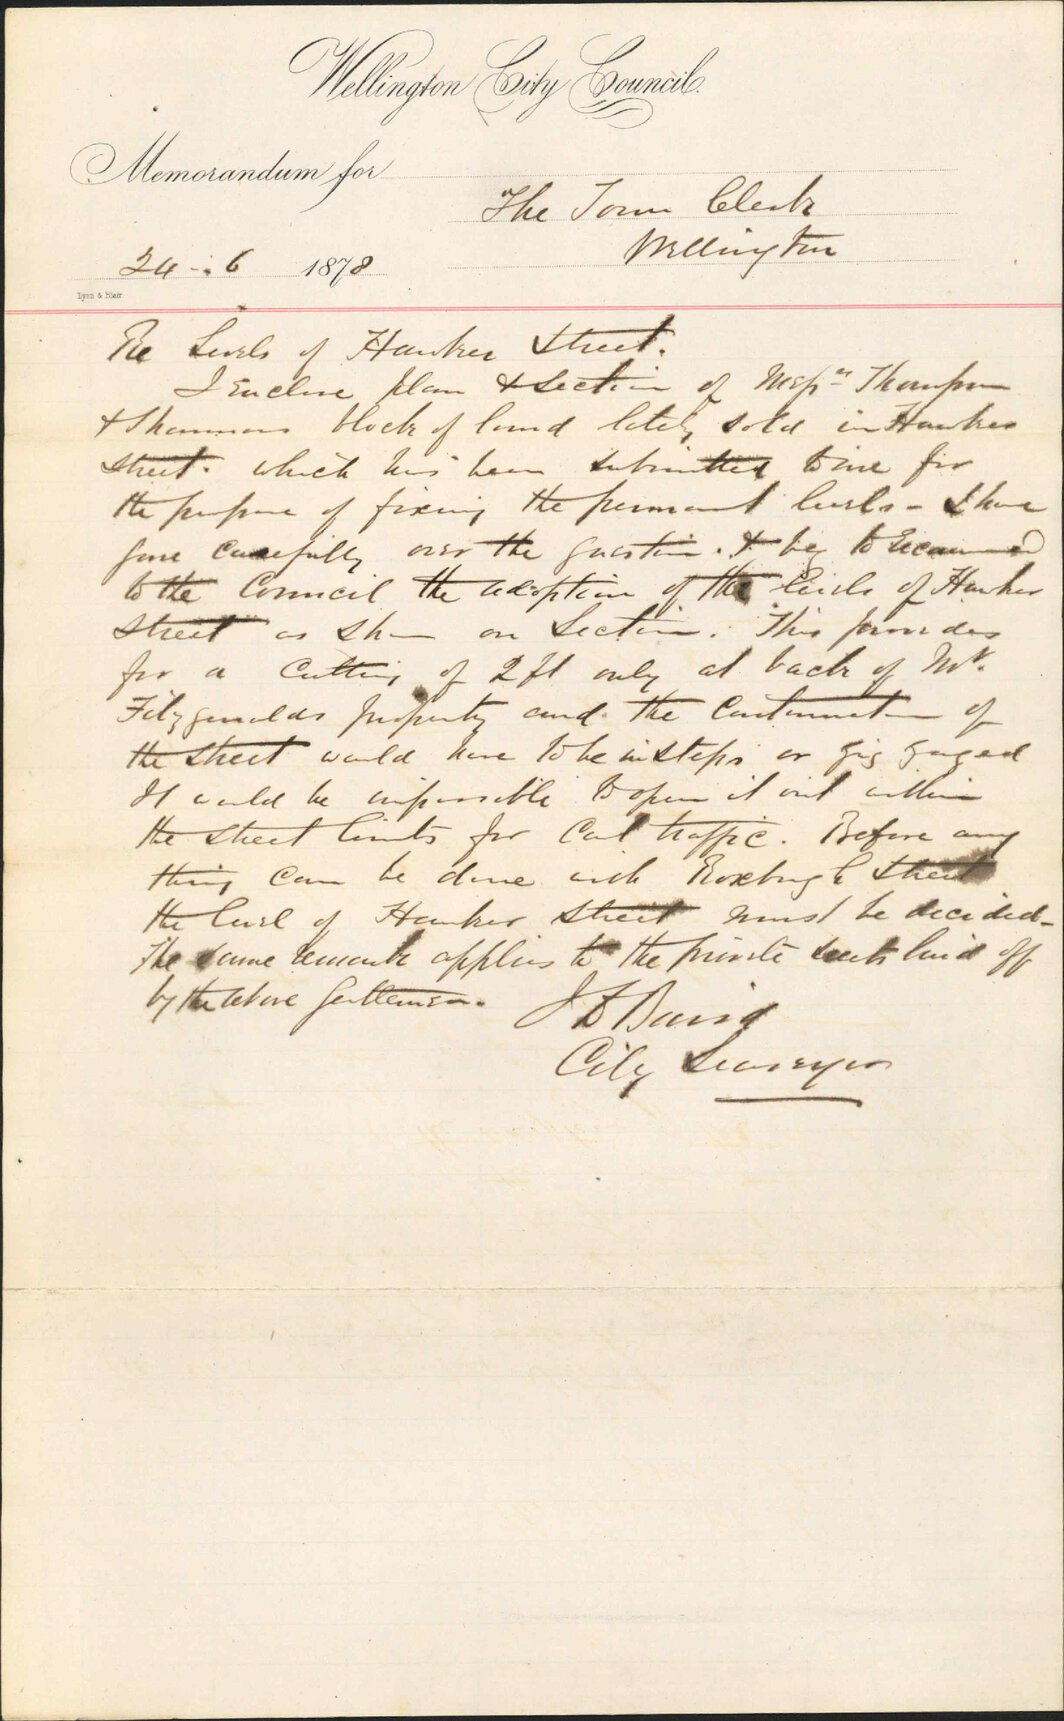 Wellington City Council.
Memorandum for
The Town Clerk
Wellington
24 - 6 1878
Lyon & Blair
Re Levels of Hawker Street.
I Enclose plan & Section of Messrs Thompson
& Shannons block of land lately sold in Hawker
Street. which has been submitted to me for
the purpose of fixing the permanent levels - I have
gone carefully over the question. & beg to Recommend
to the Council the adoption of the levels of Hawker
Street as shown on Section. This provides
for a Cutting of 2ft only at back of Mr.
Fitzgeralds property and the Continuation of
the Street would have to be in steps or zig zaged
It would be impossible to open it out within
the Street limits for Cart traffic. Before any
thing can be done with Roxburgh Street
the level of Hawker Street must be decided -
The same remark applies to the private streets laid off
by the above Gentlemen.
J D Baird
City Surveyor